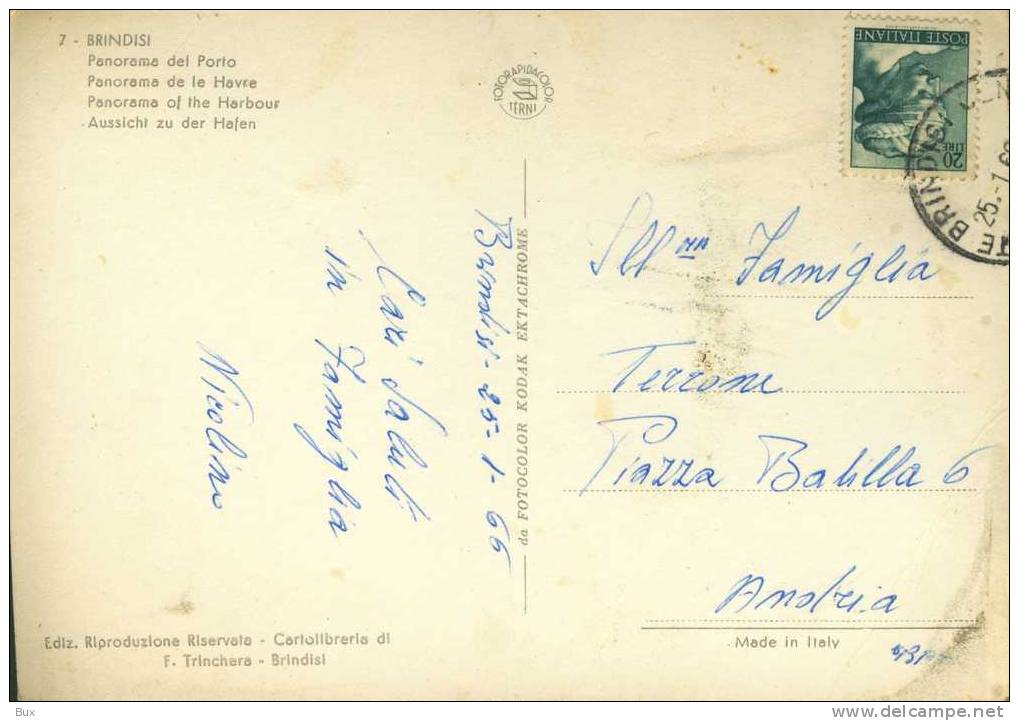 7 - BRINDISI
Panorama del Porto
Panorama de le Havre
Panorama of the Harbour
Aussicht zu der Hafen
FOTORAPIDACOLOR
TERNI
POSTE ITALIANE
20
LIRE
BRINDISI
25.-1.6
Brindisi - 25-1-66
Cari saluti
in famiglia
Nicolino
da FOTOCOLOR KODAK EKTACHROME
Ill.ma Famiglia
Terrone
Piazza Balilla 6
Andria
Ediz. Riproduzione Riservata - Cartolibreria di
F. Trinchera - Brindisi
Made in Italy
Bux
www.delcampe.net